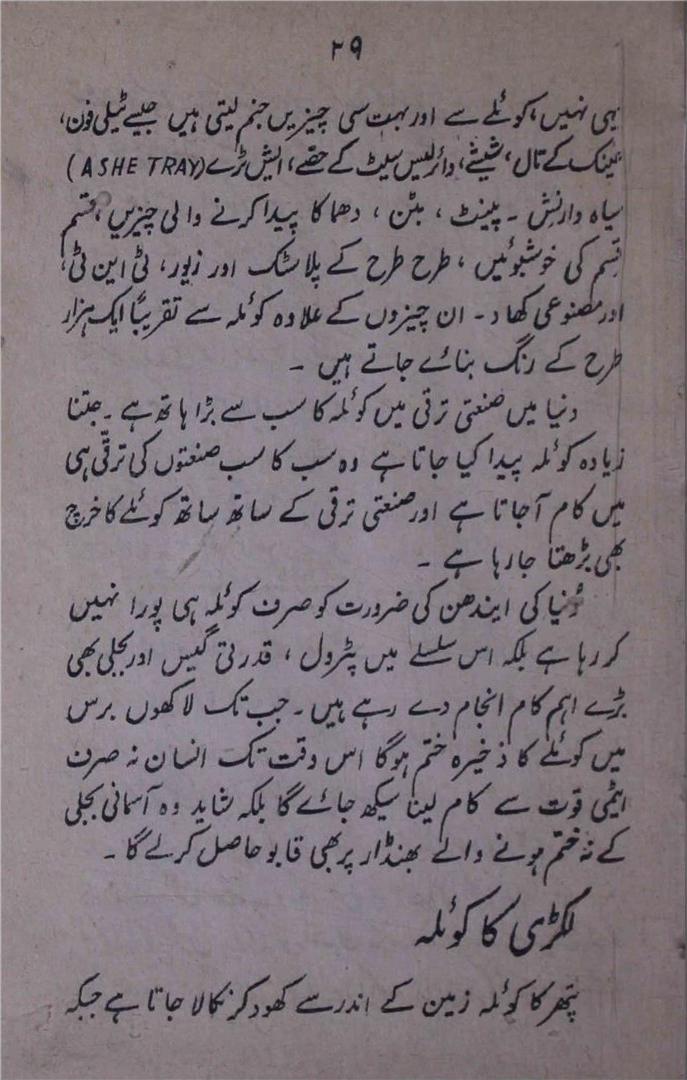 ۲۹
یہی نہیں، کوئلے سے اور بہت سی چیزیں جنم لیتی ہیں جیسے ٹیلی فون،
عینک کے تال، شیشے، وائرلیس سیٹ کے حصّے، ایش ٹرے (ASHE TRAY)
سیاہ وارنش ۔ پینٹ، بٹن، دھماکا پیدا کرنے والی چیزیں، قسم
قسم کی خوشبوئیں، طرح طرح کے پلاسٹک اور زیور، ٹی این ٹی،
اور مصنوعی کھاد ۔ ان چیزوں کے علاوہ کوئلہ سے تقریباً ایک ہزار
طرح کے رنگ بنائے جاتے ہیں ۔
دنیا میں صنعتی ترقی میں کوئلہ کا سب سے بڑا ہاتھ ہے ۔ جتنا
زیادہ کوئلہ پیدا کیا جاتا ہے وہ سب کا سب صنعتوں کی ترقّی ہی
میں کام آجاتا ہے اور صنعتی ترقی کے ساتھ ساتھ کوئلے کا خرچ
بھی بڑھتا جارہا ہے ۔
دُنیا کی ایندھن کی ضرورت کو صرف کوئلہ ہی پورا نہیں
کر رہا ہے بلکہ اس سلسلے میں پٹرول، قدرتی گیس اور بجلی بھی
بڑے اہم کام انجام دے رہے ہیں ۔ جب تک لاکھوں برس
میں کوئلے کا ذخیرہ ختم ہوگا اس وقت تک انسان نہ صرف
ایٹمی قوت سے کام لینا سیکھ جائے گا بلکہ شاید وہ آسمانی بجلی
کے نہ ختم ہونے والے بھنڈار پر بھی قابو حاصل کرلے گا ۔
لکڑی کا کوئلہ
پتھر کا کوئلہ زمین کے اندر سے کھود کر نکالا جاتا ہے جبکہ